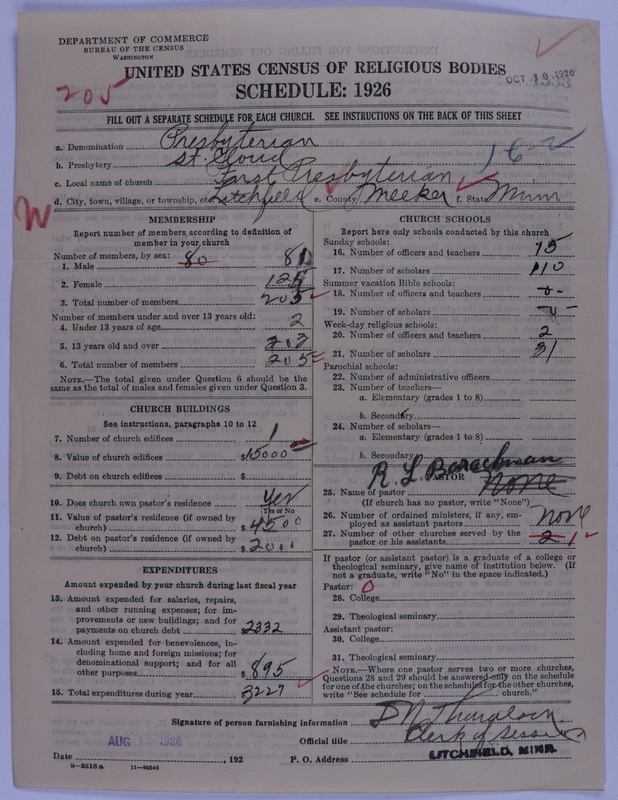 DEPARTMENT OF COMMERCE
BUREAU OF THE CENSUS
WASHINGTON
UNITED STATES CENSUS OF RELIGIOUS BODIES
OCT 19 1926
205
SCHEDULE: 1926
FILL OUT A SEPARATE SCHEDULE FOR EACH CHURCH. SEE INSTRUCTIONS ON THE BACK OF THIS SHEET
a. Denomination Presbyterian
b. Presbytery St. Cloud
c. Local name of church First Presbyterian
d. City, town, village, or township, etc. Litchfield e. County Meeker f. State Minn
W
MEMBERSHIP
Report number of members according to definition of
member in your church
Number of members, by sex:
1. Male 80 81
2. Female
3. Total number of members 205
Number of members under and over 13 years old:
4. Under 13 years of age 2
5. 13 years old and over 203
6. Total number of members 205
NOTE.—The total given under Question 6 should be
same as the total of males and females given under Question 3.
CHURCH BUILDINGS
See instructions, paragraphs 10 to 12
7. Number of church edifices 1
8. Value of church edifices $15000
9. Debt on church edifices $
10. Does church own pastor's residence Yes
Yes or No
11. Value of pastor's residence (if owned by
church) $4500
12. Debt on pastor's residence (if owned by
church) $2000
EXPENDITURES
Amount expended by your church during last fiscal year
13. Amount expended for salaries, repairs,
and other running expenses; for im-
provements or new buildings; and for
payments on church debt $2332
14. Amount expended for benevolences, in-
cluding home and foreign missions; for
denominational support; and for all
other purposes $895
15. Total expenditures during year 3227
CHURCH SCHOOLS
Report here only schools conducted by this church
Sunday schools:
16. Number of officers and teachers 15
17. Number of scholars 110
Summer vacation Bible schools:
18. Number of officers and teachers
19. Number of scholars
Week-day religious schools:
20. Number of officers and teachers 2
21. Number of scholars 31
Parochial schools:
22. Number of administrative officers
23. Number of teachers—
a. Elementary (grades 1 to 8)
b. Secondary
24. Number of scholars—
a. Elementary (grades 1 to 8)
b. Secondary
R L Barackman
PASTOR
25. Name of pastor none
(If church has no pastor, write "None")
26. Number of ordained ministers, if any, em-
ployed as assistant pastors none
27. Number of other churches served by the
pastor or his assistants 2 1
If pastor (or assistant pastor) is a graduate of a college or
theological seminary, give name of institution below. (If
not a graduate, write "No" in the space indicated.)
Pastor: 0
28. College
29. Theological seminary
Assistant pastor:
30. College
31. Theological seminary
NOTE.—Where one pastor serves two or more churches,
Questions 28 and 29 should be answered only on the schedule
for one of the churches; on the schedules for the other churches,
write "See schedule for church."
Signature of person furnishing information
Official title Clerk of Session
AUG 1926
Date , 192 P. O. Address LITCHFIELD, MINN.
8-5518a 11-9024d